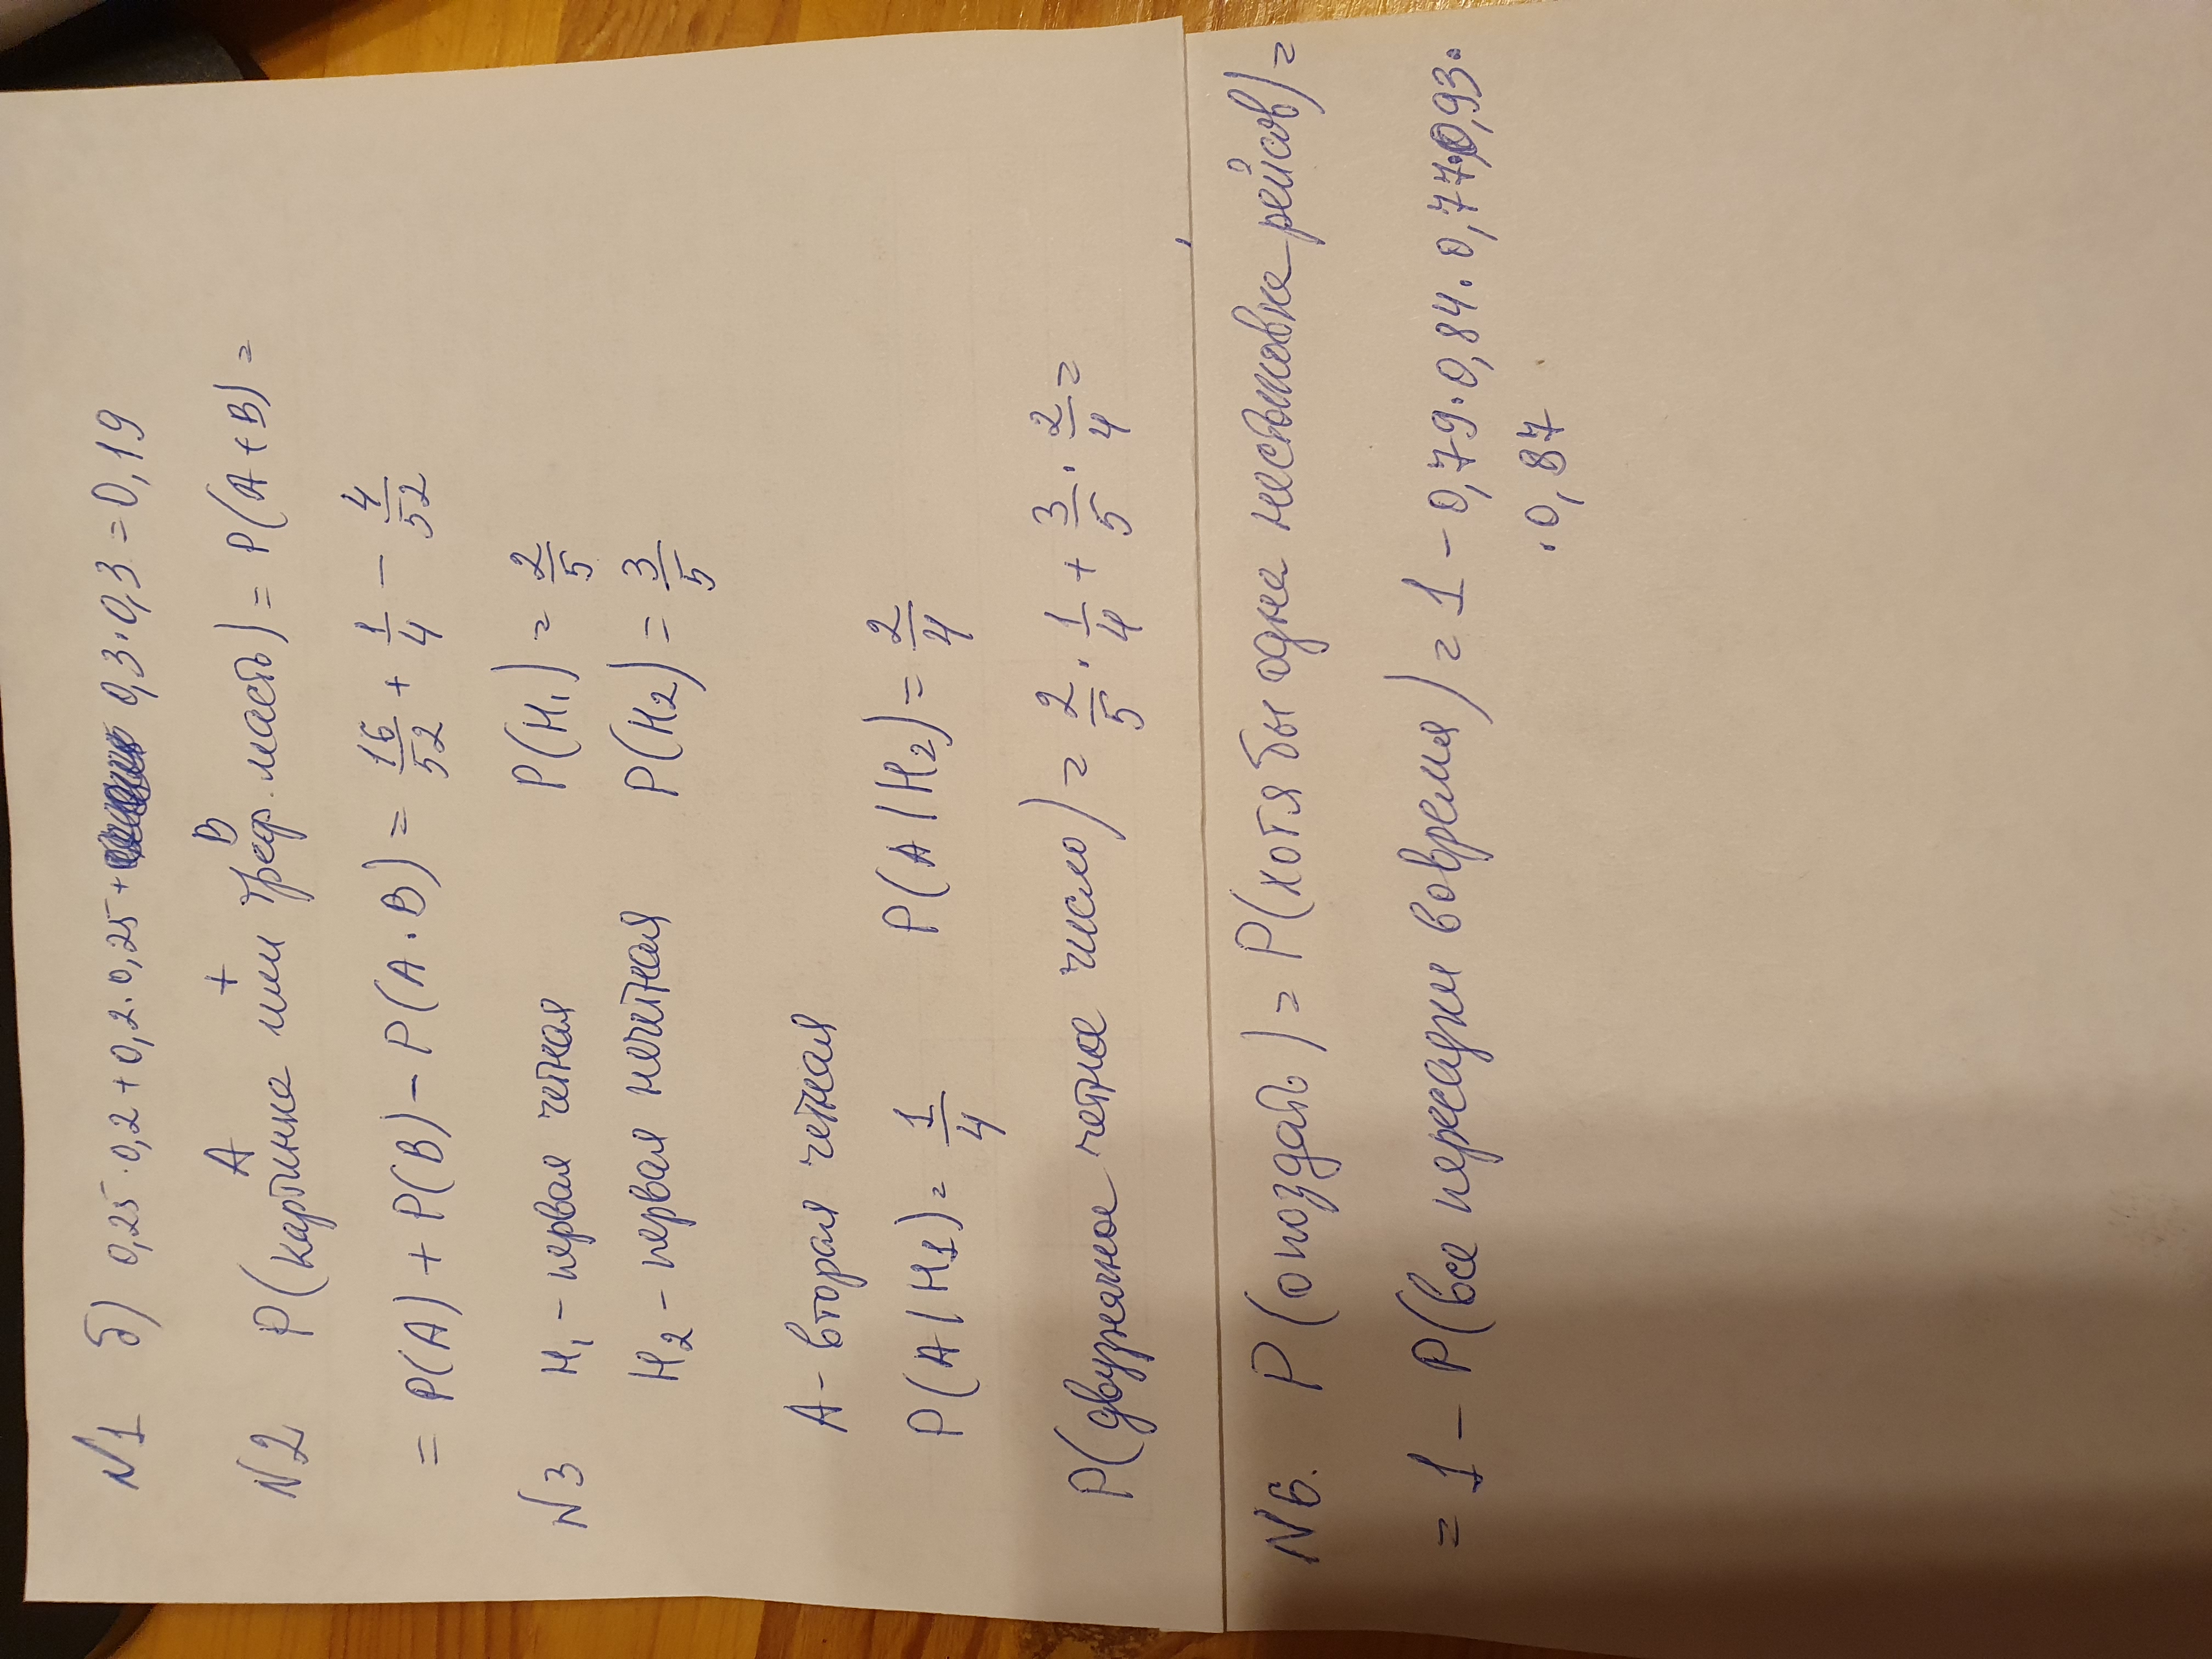 N1 б) 0,25 · 0,2 + 0,2 · 0,25 + 0,3 · 0,3 = 0,19
A + B
N2 P(картинка или треф. масть) = P(A + B) =
= P(A) + P(B) - P(A · B) = 16/52 + 1/4 - 4/52
N3 H₁ - первая четная P(H₁) = 2/5
H₂ - первая нечетная P(H₂) = 3/5
A - вторая четная
P(A|H1) = 1/4 P(A|H₂) = 2/4
P(двузначное четное число) = 2/5 · 1/4 + 3/5 · 2/4 =
N6. P(опоздать) = P(хотя бы одна нестыковка рейсов) =
= 1 - P(все пересадки вовремя) = 1 - 0,79 · 0,84 · 0,77 · 0,93 ·
· 0,87